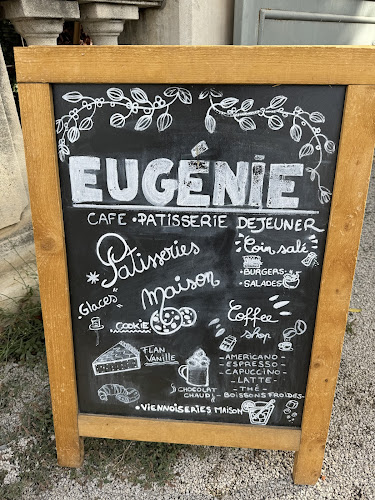 EUGÉNIE
CAFE • PATISSERIE DEJEUNER
Patisseries
Maison
* Glaces
COOKIE
FLAN
VANILLE
CHOCOLAT
CHAUD
"Coin salé"
• BURGERS
• SALADES
Coffee
shop
- AMERICANO -
- ESPRESSO -
- CAPUCCINO -
- LATTE -
- THÉ -
- BOISSONS FROIDES -
• VIENNOISERIES MAISON